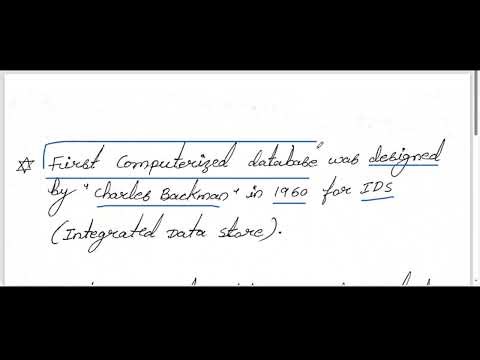 ☆ First Computerized database was designed
by "Charles Backman" in 1960 for IDS
(Integrated Data store).